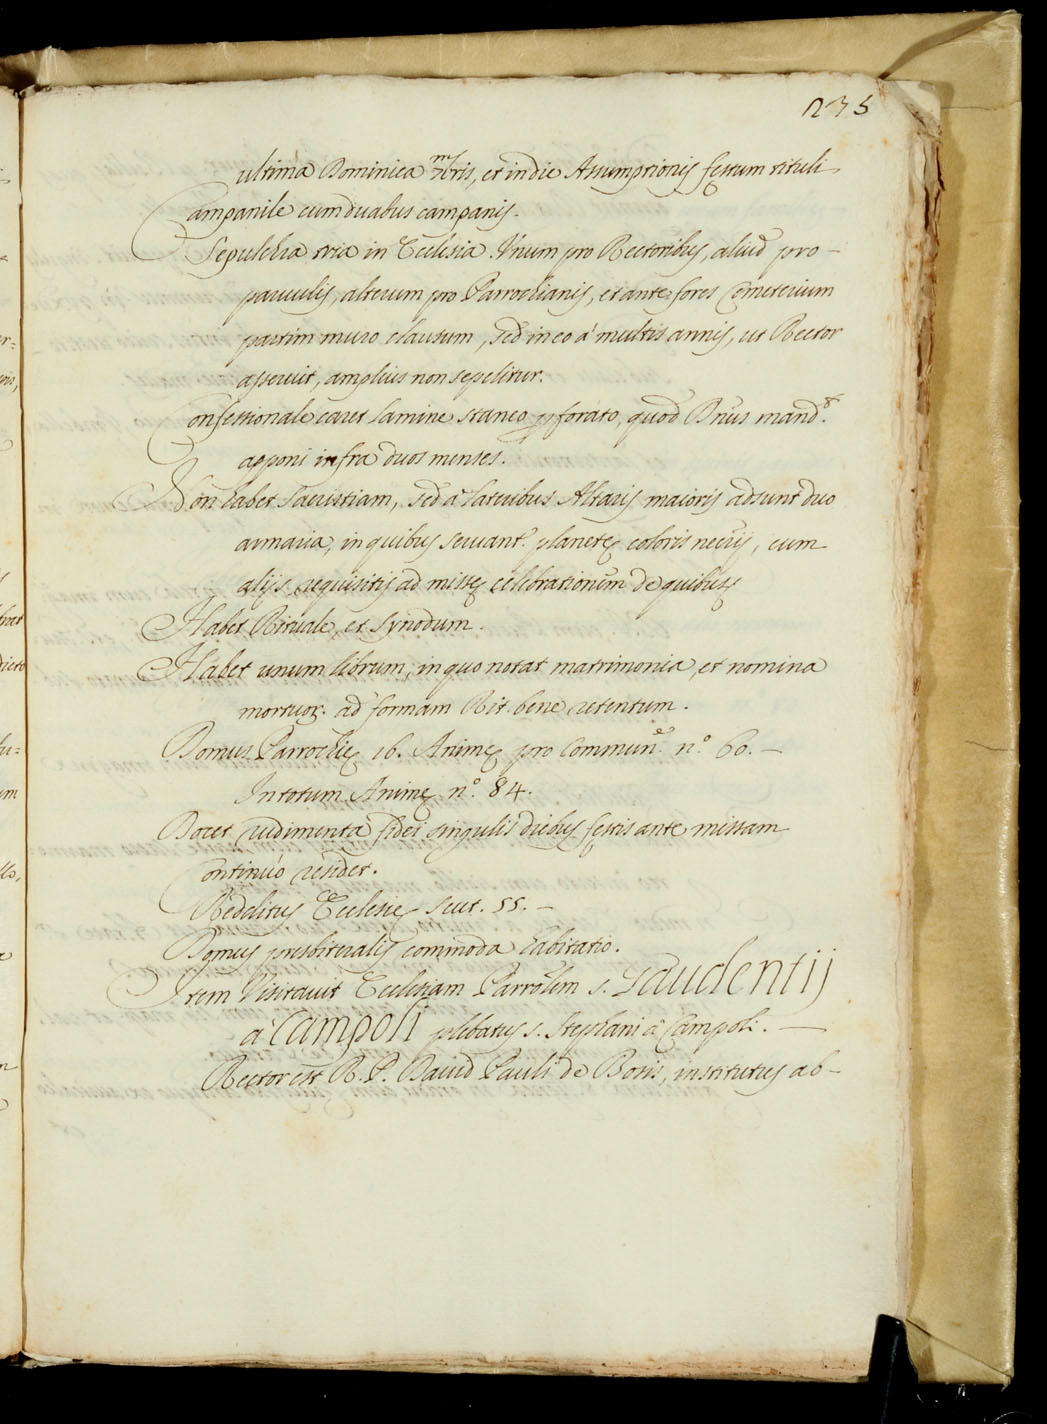 235
ultima Dominica 7mbris, et in die Assumptionis festum tituli
Campanile cum duabus campanis.
Sepulchra tria in Ecclesia. Unum pro Rectoribus, aliud pro-
parvulis, alterum pro Parrochianis, et ante fores Cometerium
partim muro clausum, sed in eo à multis annis, ut Rector
asseruit, amplius non sepelitur.
Confessionale caret lamine staneo pforato, quod Dnus mand.t
apponi infra duos menses.
Non habet sacristiam, sed à lateribus Altaris maioris adsunt duo
armaria, in quibus servant.r planetę coloris necrij, cum
alijs requisitis ad missę celebrationem de quibus
Habet Rituale, et Synodum.
Habet unum librum, in quo notat matrimonia, et nomina
mortuor. ad formam Rit. bene retentum.
Domus Parrochię 16. Animę pro Commun.e n.o 60.-
In totum Animę n.o 84.
Docet rudimenta fidei singulis diebus festis ante missam
Continuò residet.
Redditus Ecclesię scut. 55.-
Domus presbiteralis commoda habitatio.
Item Visitavit Ecclesiam Parrõlem s. Gaudentij
à Campoli plebatus s. Stephani à Campoli.-
Rector est R. P. David Pauli de Bonis, institutus ab-